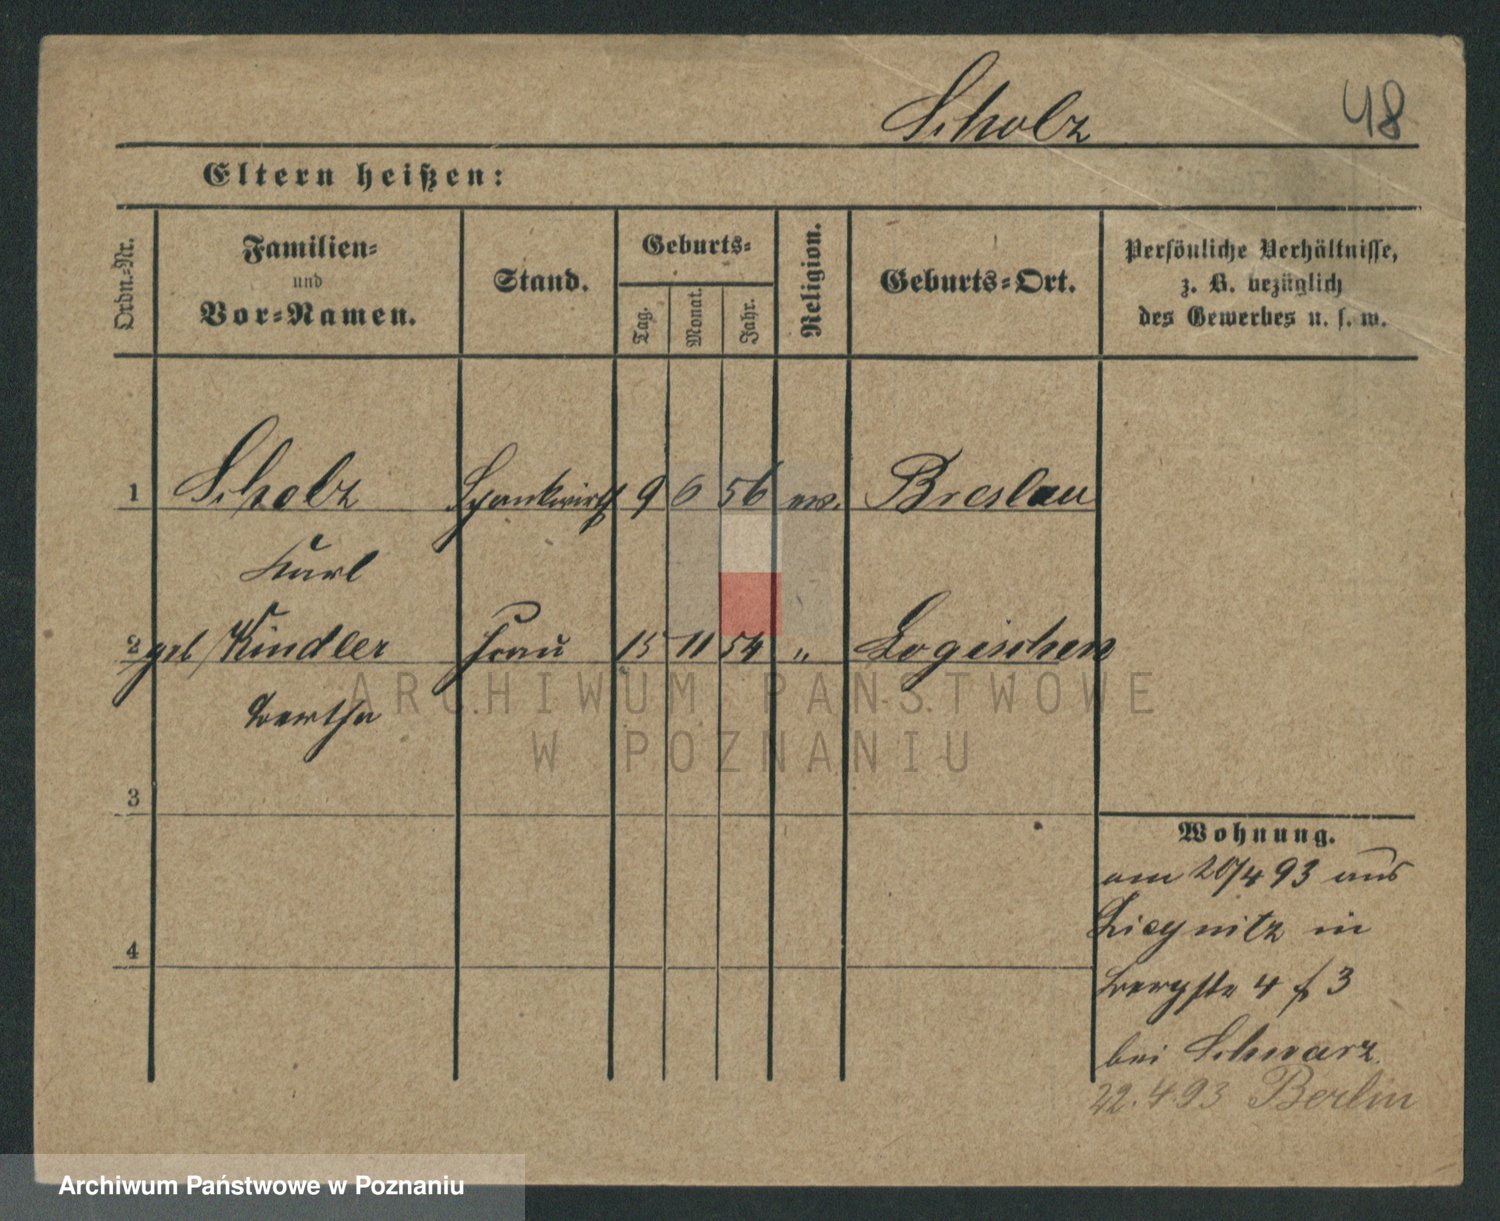 Scholz 48
Eltern heißen:
Ordn.-Nr.
Familien-
und
Vor-Namen.
Stand.
Geburts-
Tag.
Monat.
Jahr.
Religion.
Geburts-Ort.
Persönliche Verhältnisse,
z. B. bezüglich
des Gewerbes u. s. w.
1 Scholz 9 6 56 ev. Breslau
Karl
2 geb Kindler Frau 15 11 54 " Logischen
Bertha
ARCHIWUM PAŃSTWOWE
W POZNANIU
3
Wohnung.
am 20/4 93 aus
Liegnitz in
4
Bergstr 4 f 3
bei Schwarz
22.4.93 Berlin
Archiwum Państwowe w Poznaniu